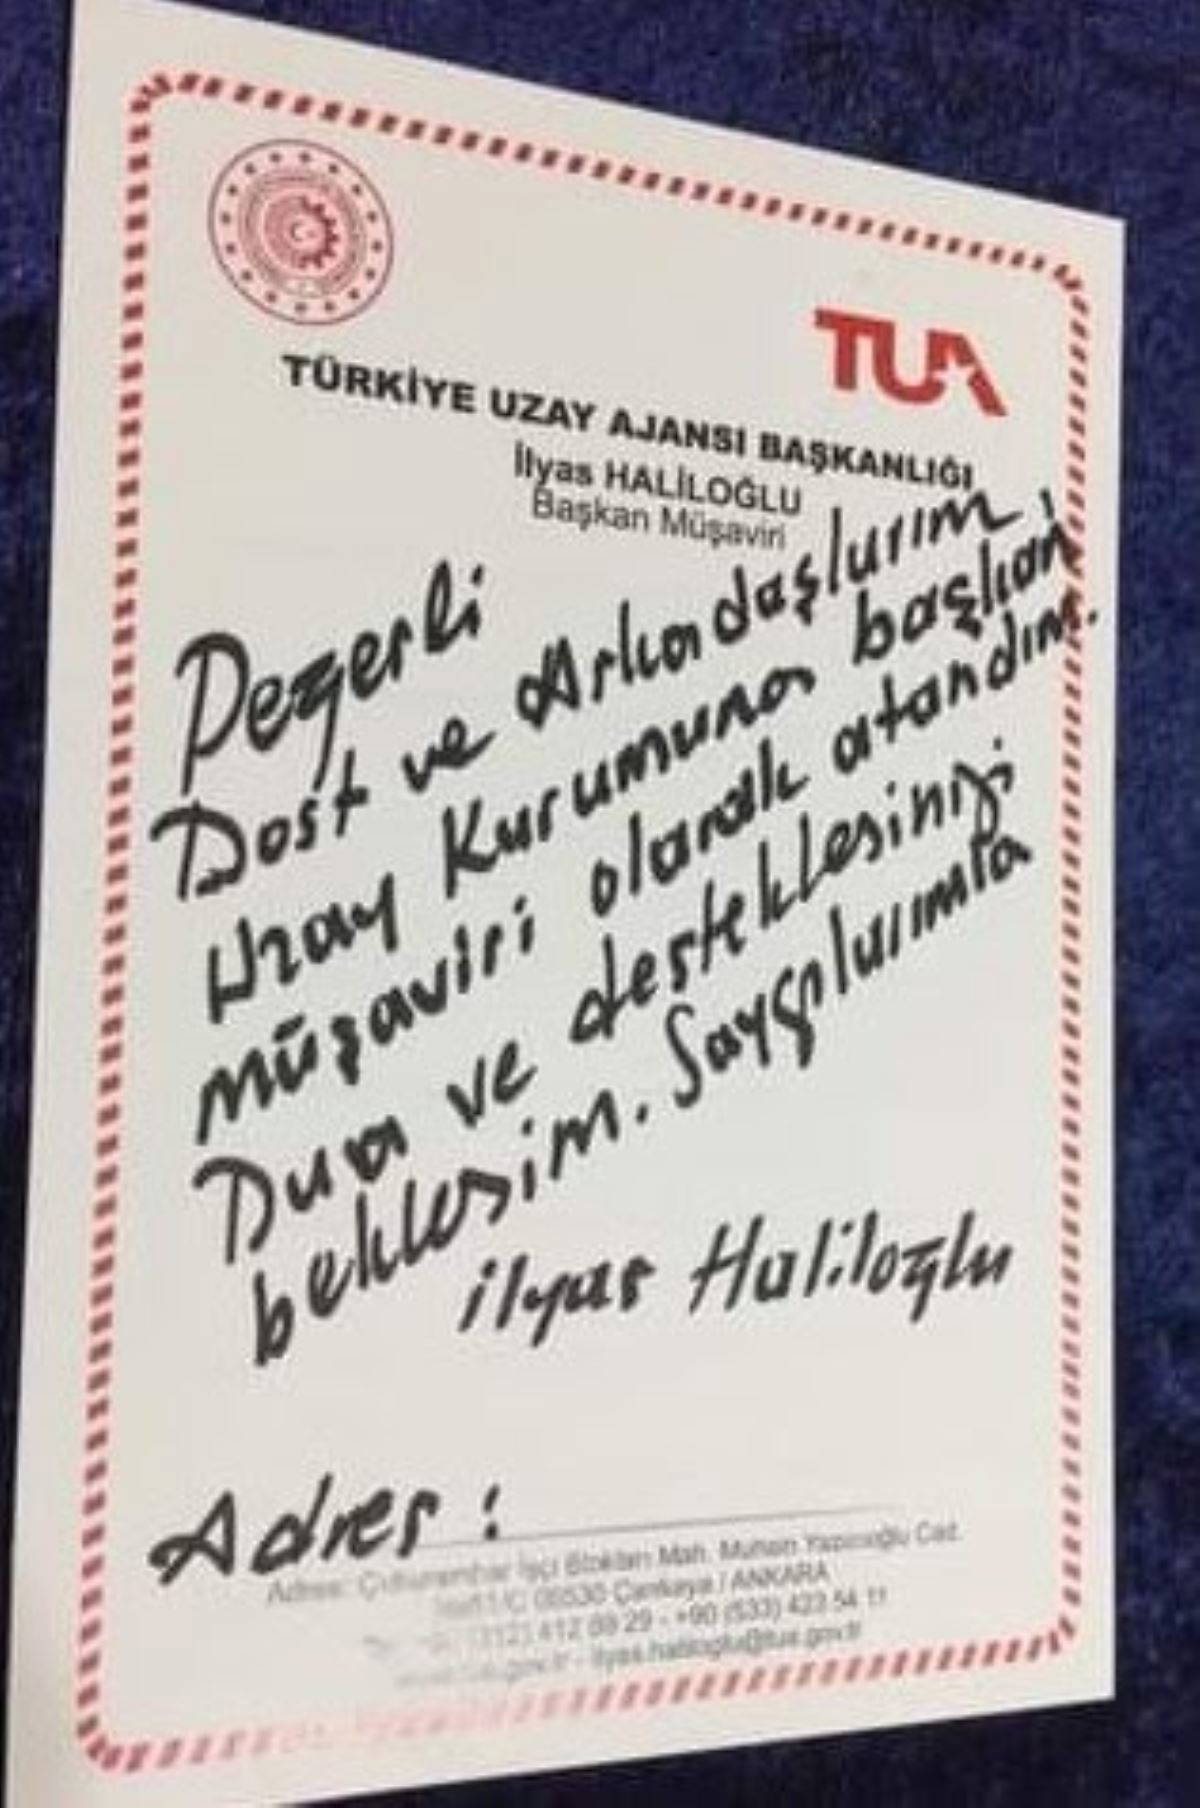 TUA
TÜRKİYE UZAY AJANSI BAŞKANLIĞI
İlyas HALİLOĞLU
Başkan Müşaviri
Değerli
Dost ve Arkadaşlarım,
Uzay Kurumuna başkan
müşaviri olarak atandım.
Dua ve desteklesinizi
beklesim. Saygılarımla
ilyas Haliloğlu
Adres :
Adres: İşçi Blokları Mah. Muhsin Yazıcıoğlu Cad.
06530 Çankaya / ANKARA
412 89 29 - +90 (533) 423 54 11
ilyas.haliloglu@tua.gov.tr